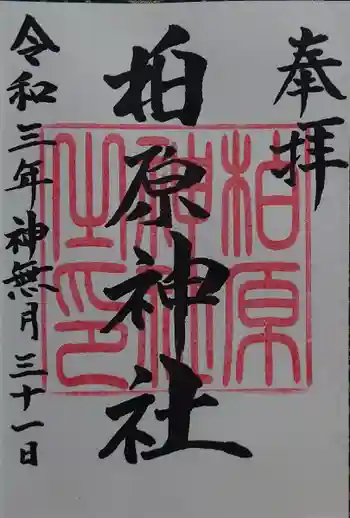 奉拝
柏原神社
柏原
神社
之印
令和三年神無月三十一日